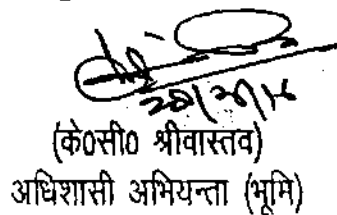 (के0सी0 श्रीवास्तव)
अधिशासी अभियन्ता (भूमि)